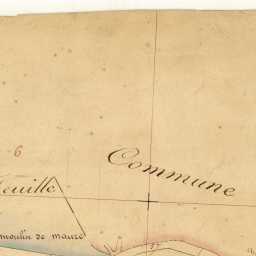 6
Commune
feuille
moulin de mauze